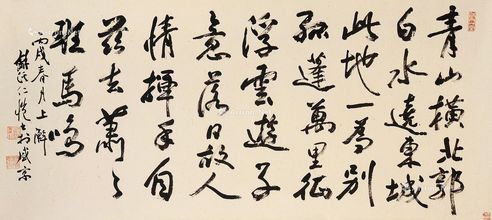 青山橫北郭
白水遶東城
此地一為別
孤蓬萬里征
浮雲遊子
意落日故人
情揮手自
茲去蕭々
班馬鳴
丙戌春月上澣